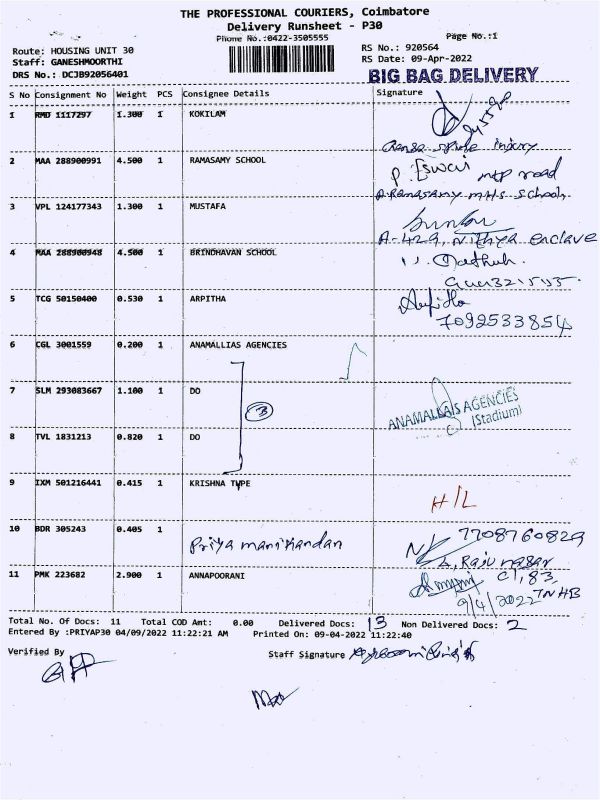 THE PROFESSIONAL COURIERS, Coimbatore
Delivery Runsheet - P30
Phone No.:0422-3505555
Page No.:1
Route: HOUSING UNIT 30
RS No.: 920564
Staff: GANESHMOORTHI
RS Date: 09-Apr-2022
DRS No.: DCJB92056401
BIG BAG DELIVERY
S No Consignment No Weight PCS Consignee Details Signature
1 RMD 1117297 1.300 1 KOKILAM
2 MAA 288900991 4.500 1 RAMASAMY SCHOOL
P. Eswari mtp road
P. Ramasamy mHs school
3 VPL 124177343 1.300 1 MUSTAFA
A-429, Nithya enclave
4 MAA 288900948 4.500 1 BRINDHAVAN SCHOOL
5 TCG 50150400 0.530 1 ARPITHA
Arpitha
7092533854
6 CGL 3001559 0.200 1 ANAMALLIAS AGENCIES
7 SLM 293083667 1.100 1 DO
ANAMALLAIS AGENCIES
(Stadium)
8 TVL 1831213 0.820 1 DO
9 IXM 501216441 0.415 1 KRISHNA TYPE
H/L
10 BDR 305243 0.405 1 Priya manikandan
7708760829
Raju nagar
11 PMK 223682 2.900 1 ANNAPOORANI
C1, 83,
TNHB
9/4/2022
Total No. Of Docs: 11 Total COD Amt: 0.00 Delivered Docs: 13 Non Delivered Docs: 2
Entered By :PRIYAP30 04/09/2022 11:22:21 AM Printed On: 09-04-2022 11:22:40
Verified By
Staff Signature